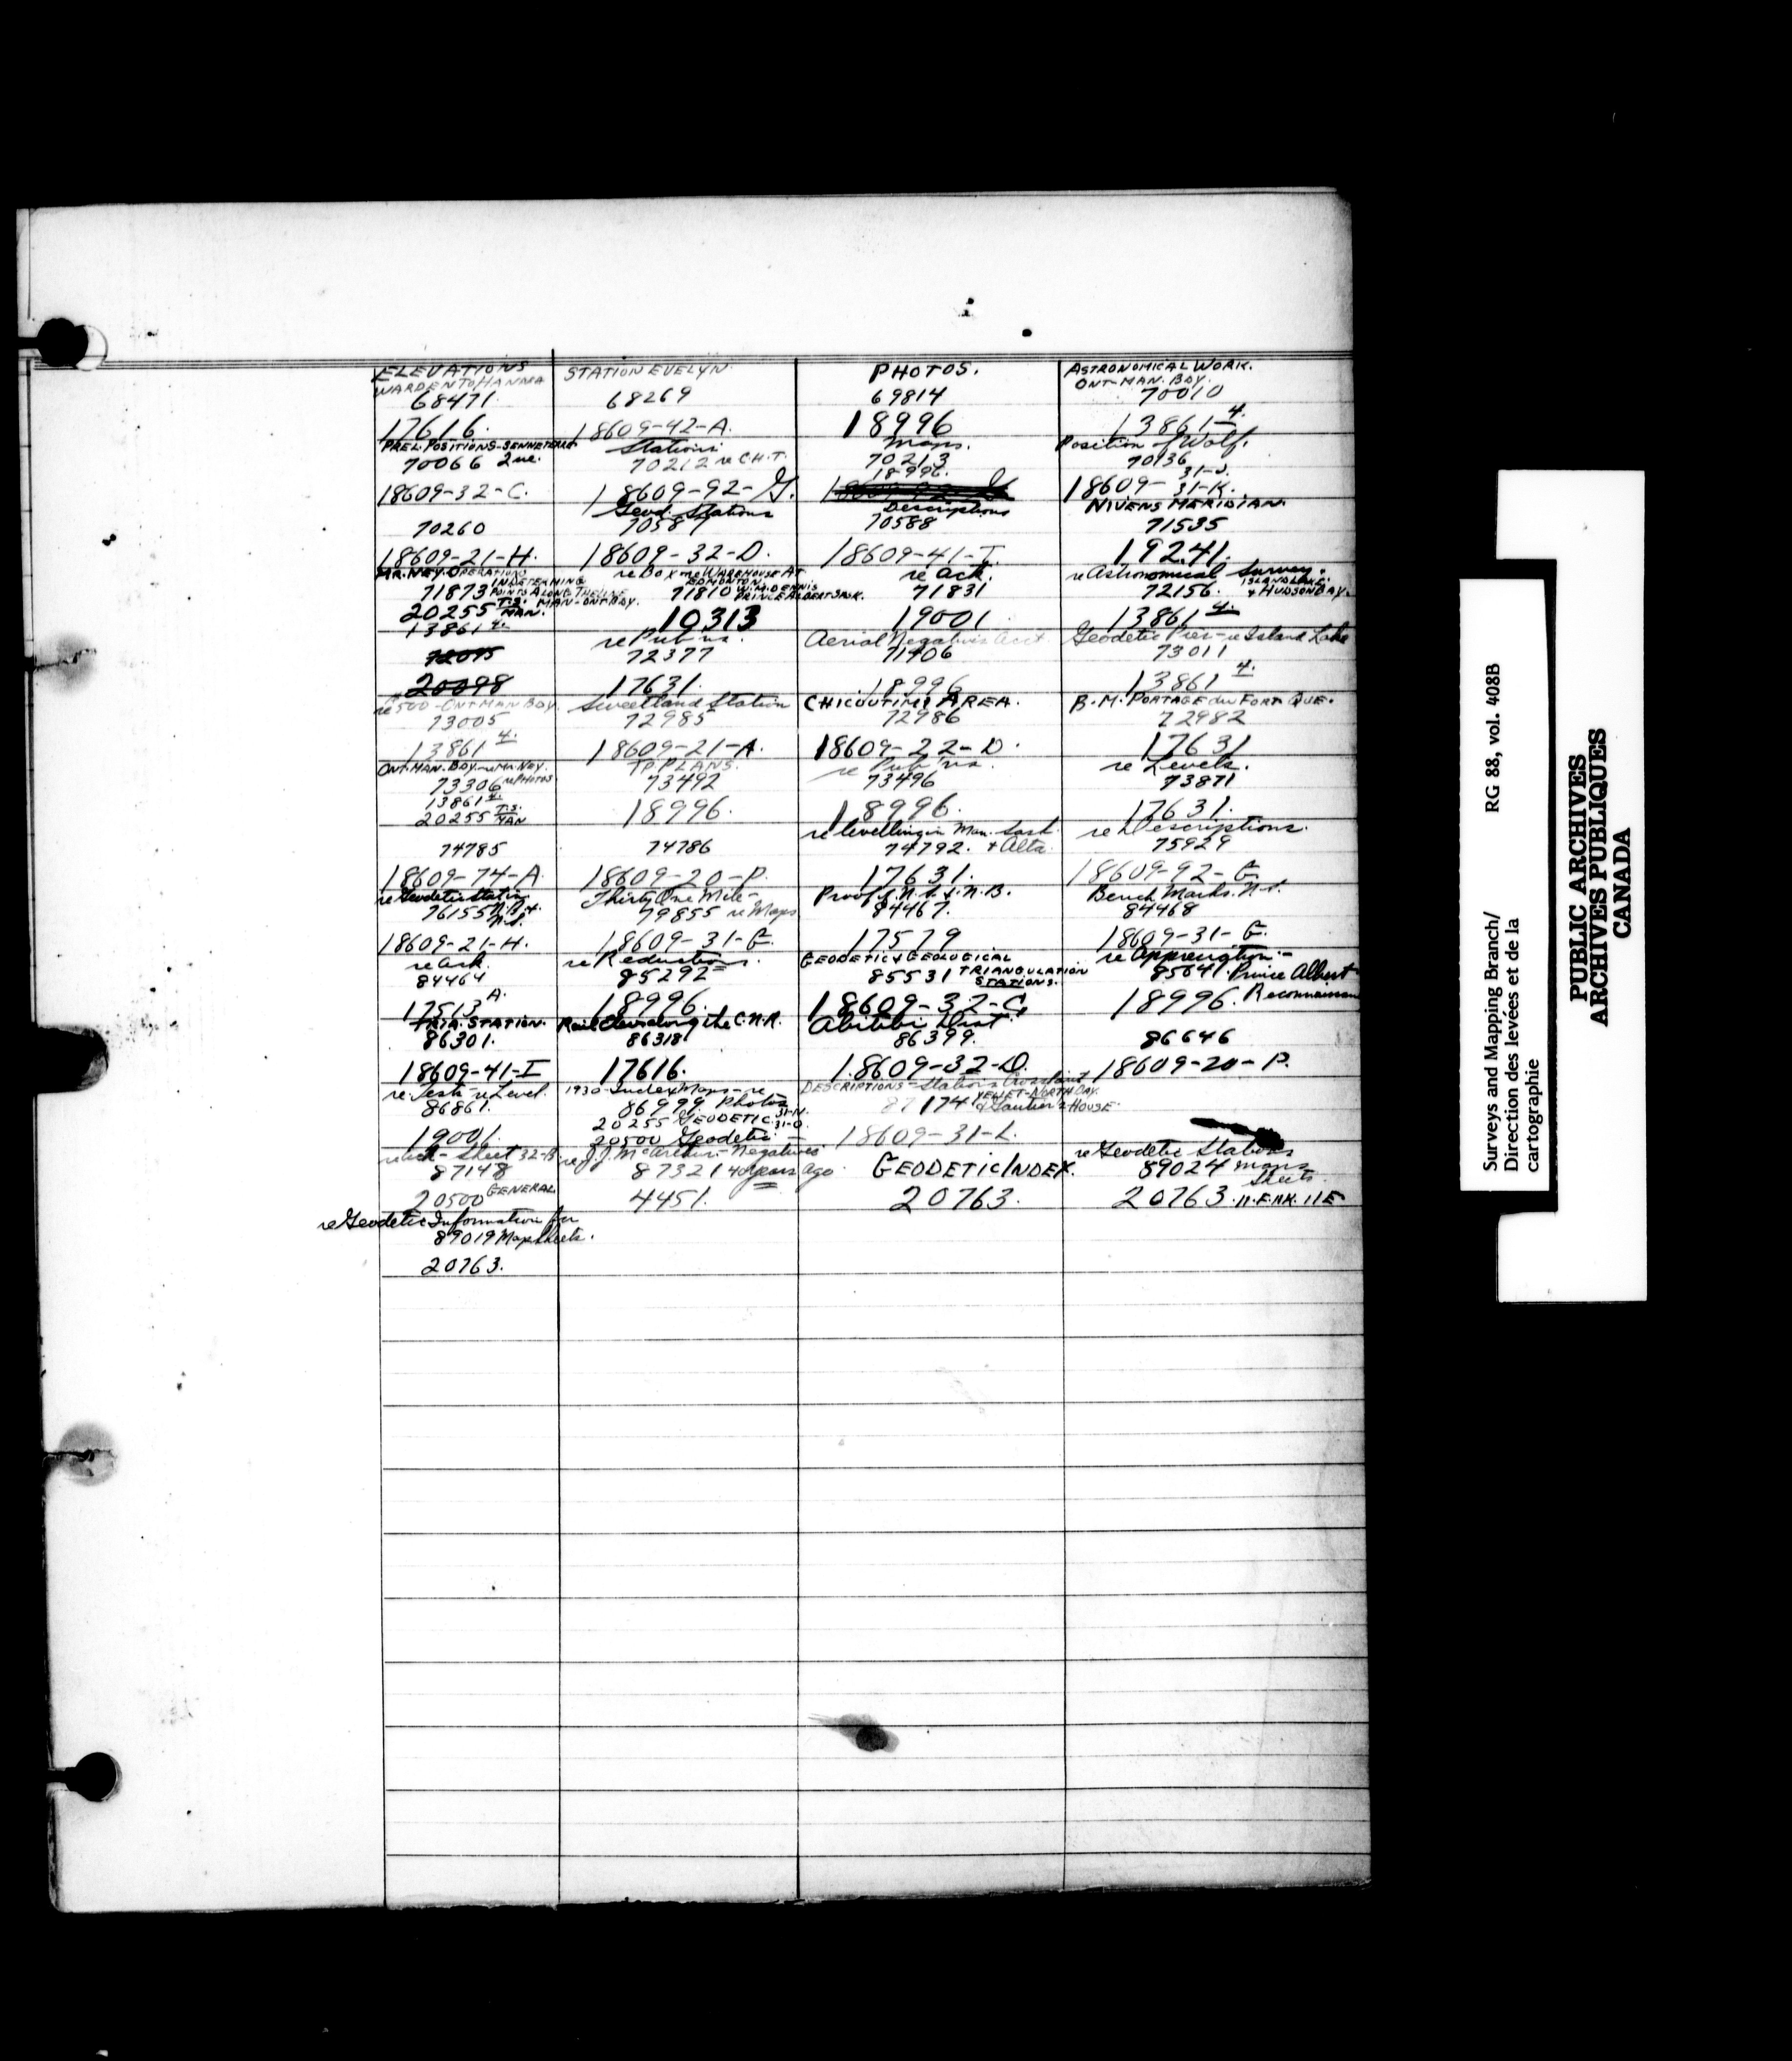 ELEVATIONS
WARDEN TO HANNA
68471
17616.
STATION EVELYN.
68269
18609-42-A.
PHOTOS.
69814
18996
ASTRONOMICAL WORK.
ONT-MAN. BDY.
70010
13861 4.
PREL. POSITIONS-SENNETERRE
70066 Que.
18609-32-C.
Stations
70212 re C.H.T.
18609-92-G.
Maps.
70213
18996.
Position of Wolf.
70136
31-J.
18609-31-K.
70260
18609-21-H.
Geod. Stations
70587
18609-32-D.
Descriptions
70588
18609-41-I.
NIVENS MERIDIAN.
71535
19241.
MR. NEY. OPERATIONS
IN DETERMING
71873 POINTS ALONG THE LINE
20255 T.S. MAN. MAN-ONT. BDY.
13861 4.
re Box me WAREHOUSE AT
EDMONTON.
71810 W.M. DENNIS
PRINCE ALBERT SASK.
10313
re Ack.
71831
19001
re Astronomical Survey.
72156. ISLAND LAKE.
& HUDSON BAY.
13861 4.
72095
20098
re Pub'ns.
72377
17631.
Aerial Negatives Acct
71406
18996
Geodetic Pier-re Island Lake
73011
13861 4.
re 500-ONT MAN BDY.
73005
13861 4.
Sweetland Station
72985
18609-21-A.
CHICOUTIMI AREA.
72986
18609-22-D.
B.M. PORTAGE du FORT QUE.
72982
17631
ONT. MAN. BDY-re MR. NEY.
73306 re PHOTOS.
13861 4.
20255 T.S. MAN
TP. PLANS.
73492
18996.
re Pub'ns.
73496
18996.
re Levels.
73871
17631.
74785
18609-74-A.
74786
18609-20-P.
re levelling in Man. Sask.
74792. & Alta.
17631.
re Descriptions.
75929
18609-92-G.
re Geodetic Station
76155 N.B. &
N.S.
18609-21-H.
Thirty One Mile-
79855 re Maps
18609-31-G.
Proof of N.S. & N.B.
84467.
17579
Bench Marks. N.S.
84468
18609-31-G.
re Ack.
84464
17513 A.
re Reductions.
85292
18996.
GEODETIC & GEOLOGICAL
85531 TRIANGULATION
STATIONS.
18609-32-C.
re Appreciation-
85641. Prince Albert
18996. Reconnaissance
TRIA. STATION.
86301.
18609-41-I
Rail Elevs along the C.N.R.
86318
17616.
Abitibi Dist.
86399.
18609-32-D.
86646
18609-20-P.
re Tests re Level.
86861.
19001.
1930-Index Maps-re
86999 Photos
20255 GEODETIC 31-N.
31-O.
20500 Geodetic-
DESCRIPTIONS-Stations
87174
& Gautier's HOUSE.
18609-31-L.
re Ack-Sheet 32-B.
87148
20500 GENERAL
re J.J. McArthur-Negatives
87321 40 years ago
4451.
GEODETIC INDEX.
20763.
re Geodetic Stations
89024 maps
Sheets.
20763. 11-E. AK. 11E
re Geodetic Information for
89019 Mapsheets.
20763.
Surveys and Mapping Branch/ RG 88, vol. 408B
Direction des levées et de la
cartographie
PUBLIC ARCHIVES
ARCHIVES PUBLIQUES
CANADA